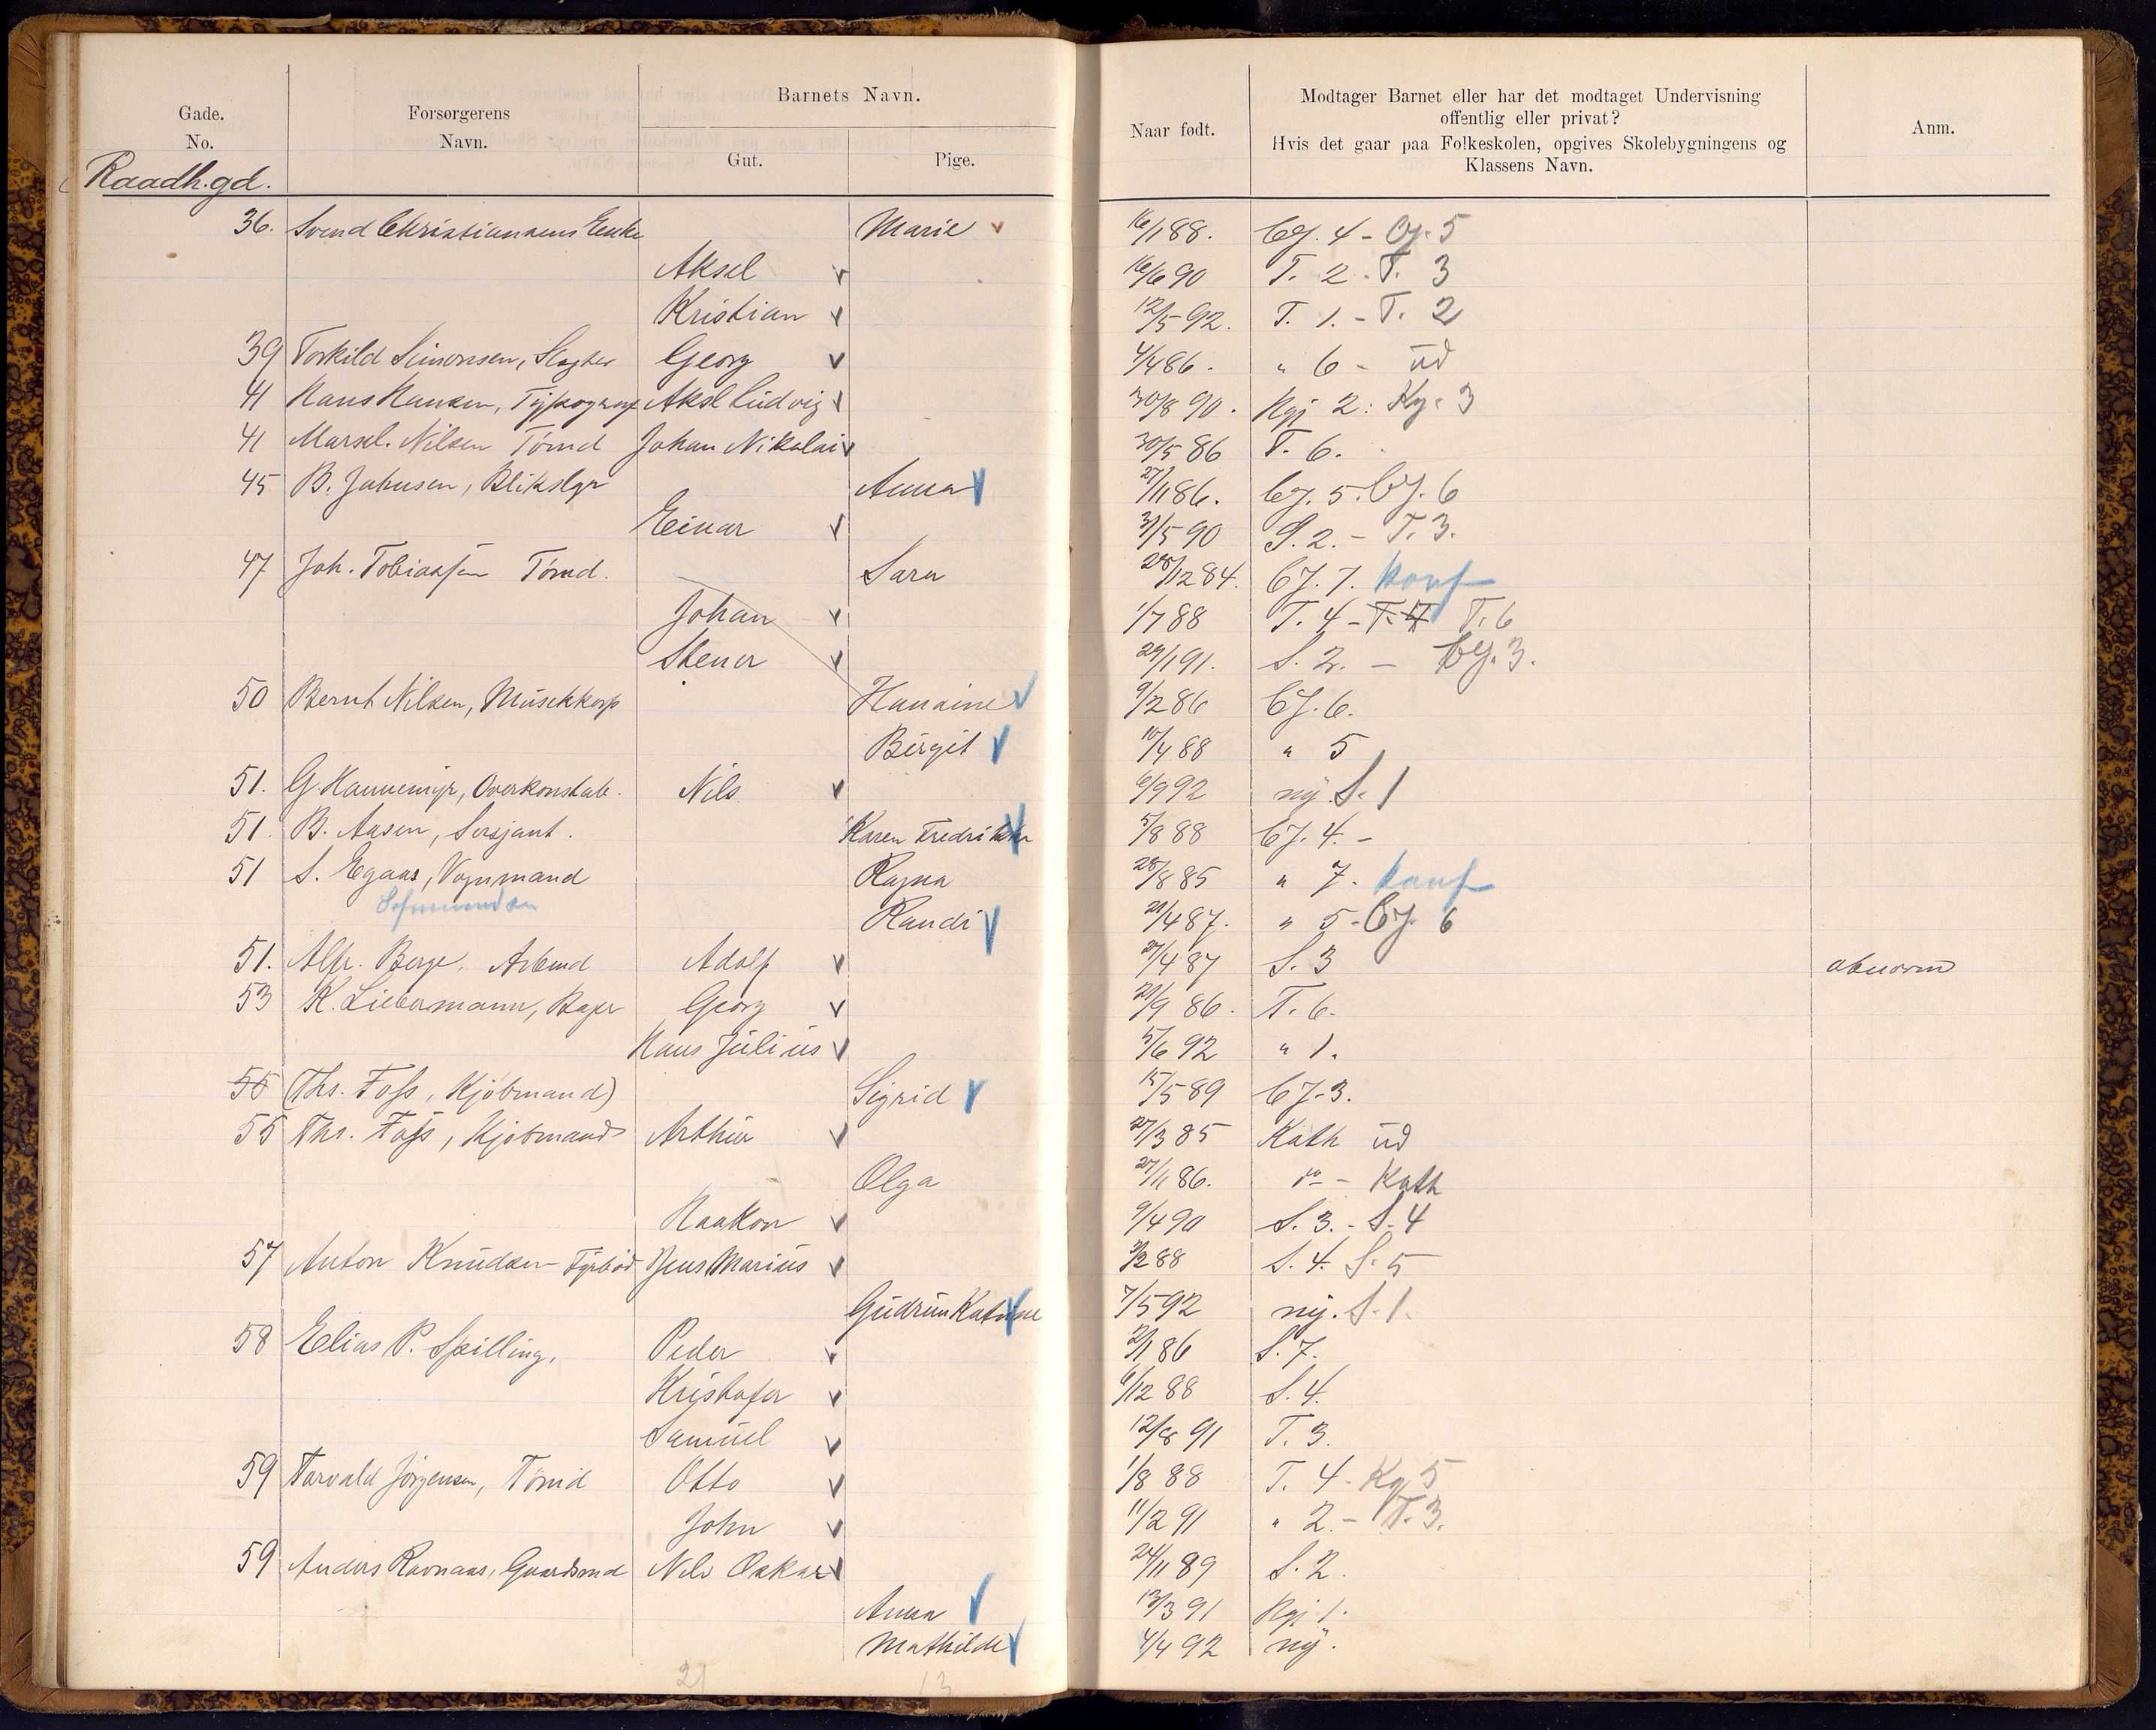 Gade.
No.
Raadh.gd.
Forsørgerens
Navn.
Barnets Navn.
Gut.
Pige.
Naar født.
Modtager Barnet eller har det modtaget Undervisning
offentlig eller privat?
Hvis det gaar paa Folkeskolen, opgives Skolebygningens og
Klassens Navn.
Anm.
36. Svend Christiansens Enke Marie 16/1 88. Cf. 4 - Cf. 5
Aksel 16/6 90 T. 2 - T. 3
Kristian 12/5 92. T. 1. - T. 2
39 Torkild Simonsen, Slagter Georg 4/4 86. " 6 - ud
41 Hans Hansen, Typograf Aksel Ludvig 30/8 90. Kgj 2: Kg. 3
41 Marsel. Nilsen Tømd Johan Nikolai 30/5 86 T. 6.
45 B. Johnsen, Blikslgr Anna 27/11 86. Cf. 5. Cf. 6
Einar 31/5 90 S. 2. - T. 3.
47 Joh. Tobiassen Tømd. Sara 28/12 84. Cf. 7. konf
Johan 1/7 88 T. 4 - T. 6
Stener 29/1 91. S. 2. - Cf. 3.
50 Bernt Nilsen, Musikkorp Hanaine 9/2 86 Cf. 6.
Birgit 10/4 88 " 5
51. G. Hannemyr, Overkonstab. Nils 6/9 92 ny. S. 1
51. B. Aasen, Sersjant. Karen Fredrikke 5/8 88 Cf. 4. -
51 S. Egaas, Vognmand Ragna 28/8 85 " 7. konf
Randi 21/4 87. " 5 - Cf. 6
51. Alfr. Berge, Arbmd Adolf 27/4 87 S. 3 abnorm
53 K. Liebermann, Bager Georg 20/9 86. T. 6.
Hans Julius 5/6 92 " 1.
55 (Ths. Foss, Kjøbmand) Sigrid 15/5 89 Cf. 3.
55 Ths. Foss, Kjøbmand Arthur 27/3 85 Kath ud
Olga 27/11 86. " - Kath
Haakon 9/4 90 S. 3. - S. 4
57 Anton Knudsen Fyrbød Jens Marius 3/2 88 S. 4. S. 5
Gudrun Katrine 7/5 92 ny. S. 1.
58 Elias P. Spilling, Peder 2/1 86 S. 7.
Kristofer 6/12 88 S. 4.
Samuel 12/8 91 T. 3.
59 Torvald Jörgensen, Tømd Otto 1/8 88 T. 4 - Kg 5
John 11/2 91 " 2. - T. 3.
59 Anders Ravnaas, Gaardsmd Nils Oskar 24/11 89 S. 2.
Anna 13/3 91 Kgj 1.
Mathilde 4/4 92 ny.
21 13